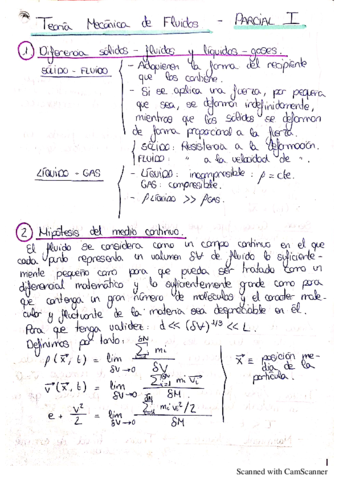 Teoría Mecánica de Fluidos - PARCIAL I
1 Diferencia sólidos - fluidos y líquidos - gases.
SÓLIDO - FLUIDO
- Adquieren la forma del recipiente que los contiene.
- Si se aplica una fuerza, por pequeña que sea, se deforman indefinidamente, mientras que los sólidos se deforman de forma proporcional a la fuerza.
SÓLIDO: Resistencia a la deformación.
FLUIDO: " a la velocidad de ".
LÍQUIDO - GAS
- LÍQUIDO: incompresible: ρ = cte.
GAS: compresible.
- ρ LÍQUIDO >> ρ GAS.
2 Hipótesis del medio continuo.
El fluido se considera como un campo continuo en el que
cada punto representa un volumen δV de fluido lo suficiente-
mente pequeño como para que pueda ser tratado como un
diferencial matemático y lo suficientemente grande como para
que contenga un gran número de moléculas y el caracter mole-
cular y fluctuante de la materia sea despreciable en él.
Para que tenga validez: d << (δV)^1/3 << L.
Definimos por tanto:
ρ(x⃗, t) = lim δV→0 Σ mi / δV
v⃗(x⃗, t) = lim δV→0 Σ mi v⃗i / δM
e + v²/2 = lim δV→0 Σ mi vi²/2 / δM
x⃗ ≡ posición me-
dia de la
partícula.
1
Scanned with CamScanner